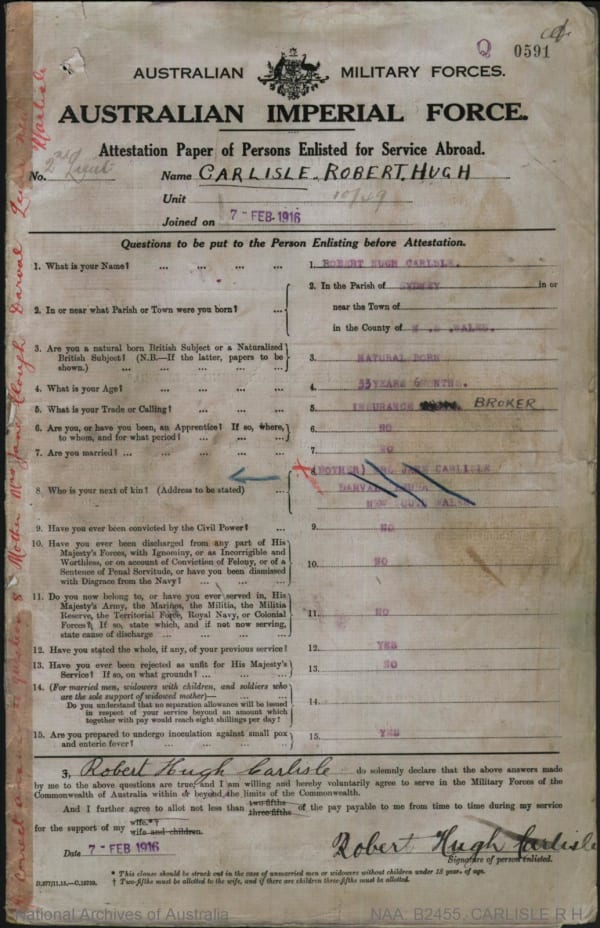 Q 0591
AUSTRALIAN MILITARY FORCES.
AUSTRALIAN IMPERIAL FORCE.
Attestation Paper of Persons Enlisted for Service Abroad.
2nd Lieut
No. Name CARLISLE. ROBERT. HUGH
Unit 10/49
Joined on 7 - FEB. 1916
Questions to be put to the Person Enlisting before Attestation.
1. What is your Name? ... ... ... ... 1. ROBERT HUGH CARLISLE.
2. In or near what Parish or Town were you born? ... 2. In the Parish of SYDNEY in or
near the Town of
in the County of N.S WALES.
3. Are you a natural born British Subject or a Naturalized
British Subject? (N.B.—If the latter, papers to be
shown.) ... ... ... ... ... 3. NATURAL BORN
4. What is your Age? ... ... ... ... 4. 33 YEARS 6 MONTHS.
5. What is your Trade or Calling? ... ... ... 5. INSURANCE BROKER
6. Are you, or have you been, an Apprentice? If so, where,
to whom, and for what period? ... ... ... 6. NO
7. Are you married? ... ... ... ... ... 7. NO
8. Who is your next of kin? (Address to be stated) ... (MOTHER) MRS JANE CARLISLE
DARVAL
NEW SOUTH WALES
9. Have you ever been convicted by the Civil Power? ... 9. NO
10. Have you ever been discharged from any part of His
Majesty's Forces, with Ignominy, or as Incorrigible and
Worthless, or on account of Conviction of Felony, or of a
Sentence of Penal Servitude, or have you been dismissed
with Disgrace from the Navy? ... ... ... 10. NO
11. Do you now belong to, or have you ever served in, His
Majesty's Army, the Marines, the Militia, the Militia
Reserve, the Territorial Force, Royal Navy, or Colonial
Forces? If so, state which, and if not now serving,
state cause of discharge ... ... ... ... 11. NO
12. Have you stated the whole, if any, of your previous service? 12. YES
13. Have you ever been rejected as unfit for His Majesty's
Service? If so, on what grounds? ... ... ... 13. NO
14. (For married men, widowers with children, and soldiers who
are the sole support of widowed mother)—
Do you understand that no separation allowance will be issued
in respect of your service beyond an amount which
together with pay would reach eight shillings per day? 14.
15. Are you prepared to undergo inoculation against small pox
and enteric fever? ... ... ... ... 15. YES
I, Robert Hugh Carlisle do solemnly declare that the above answers made
by me to the above questions are true, and I am willing and hereby voluntarily agree to serve in the Military Forces of the
Commonwealth of Australia within or beyond the limits of the Commonwealth.
And I further agree to allot not less than two-fifths of the pay payable to me from time to time during my service
for the support of my wife.*†
wife and children.
Date 7 - FEB 1916
Robert Hugh Carlisle
Signature of person enlisted.
* This clause should be struck out in the case of unmarried men or widowers without children under 18 years of age.
† Two-fifths must be allotted to the wife, and if there are children three-fifths must be allotted.
D.277/11.15.—C.15719.
Correct answer to question 8 Mother Mrs Jane Clough Darval
Carlisle
National Archives of Australia
NAA: B2455, CARLISLE R H